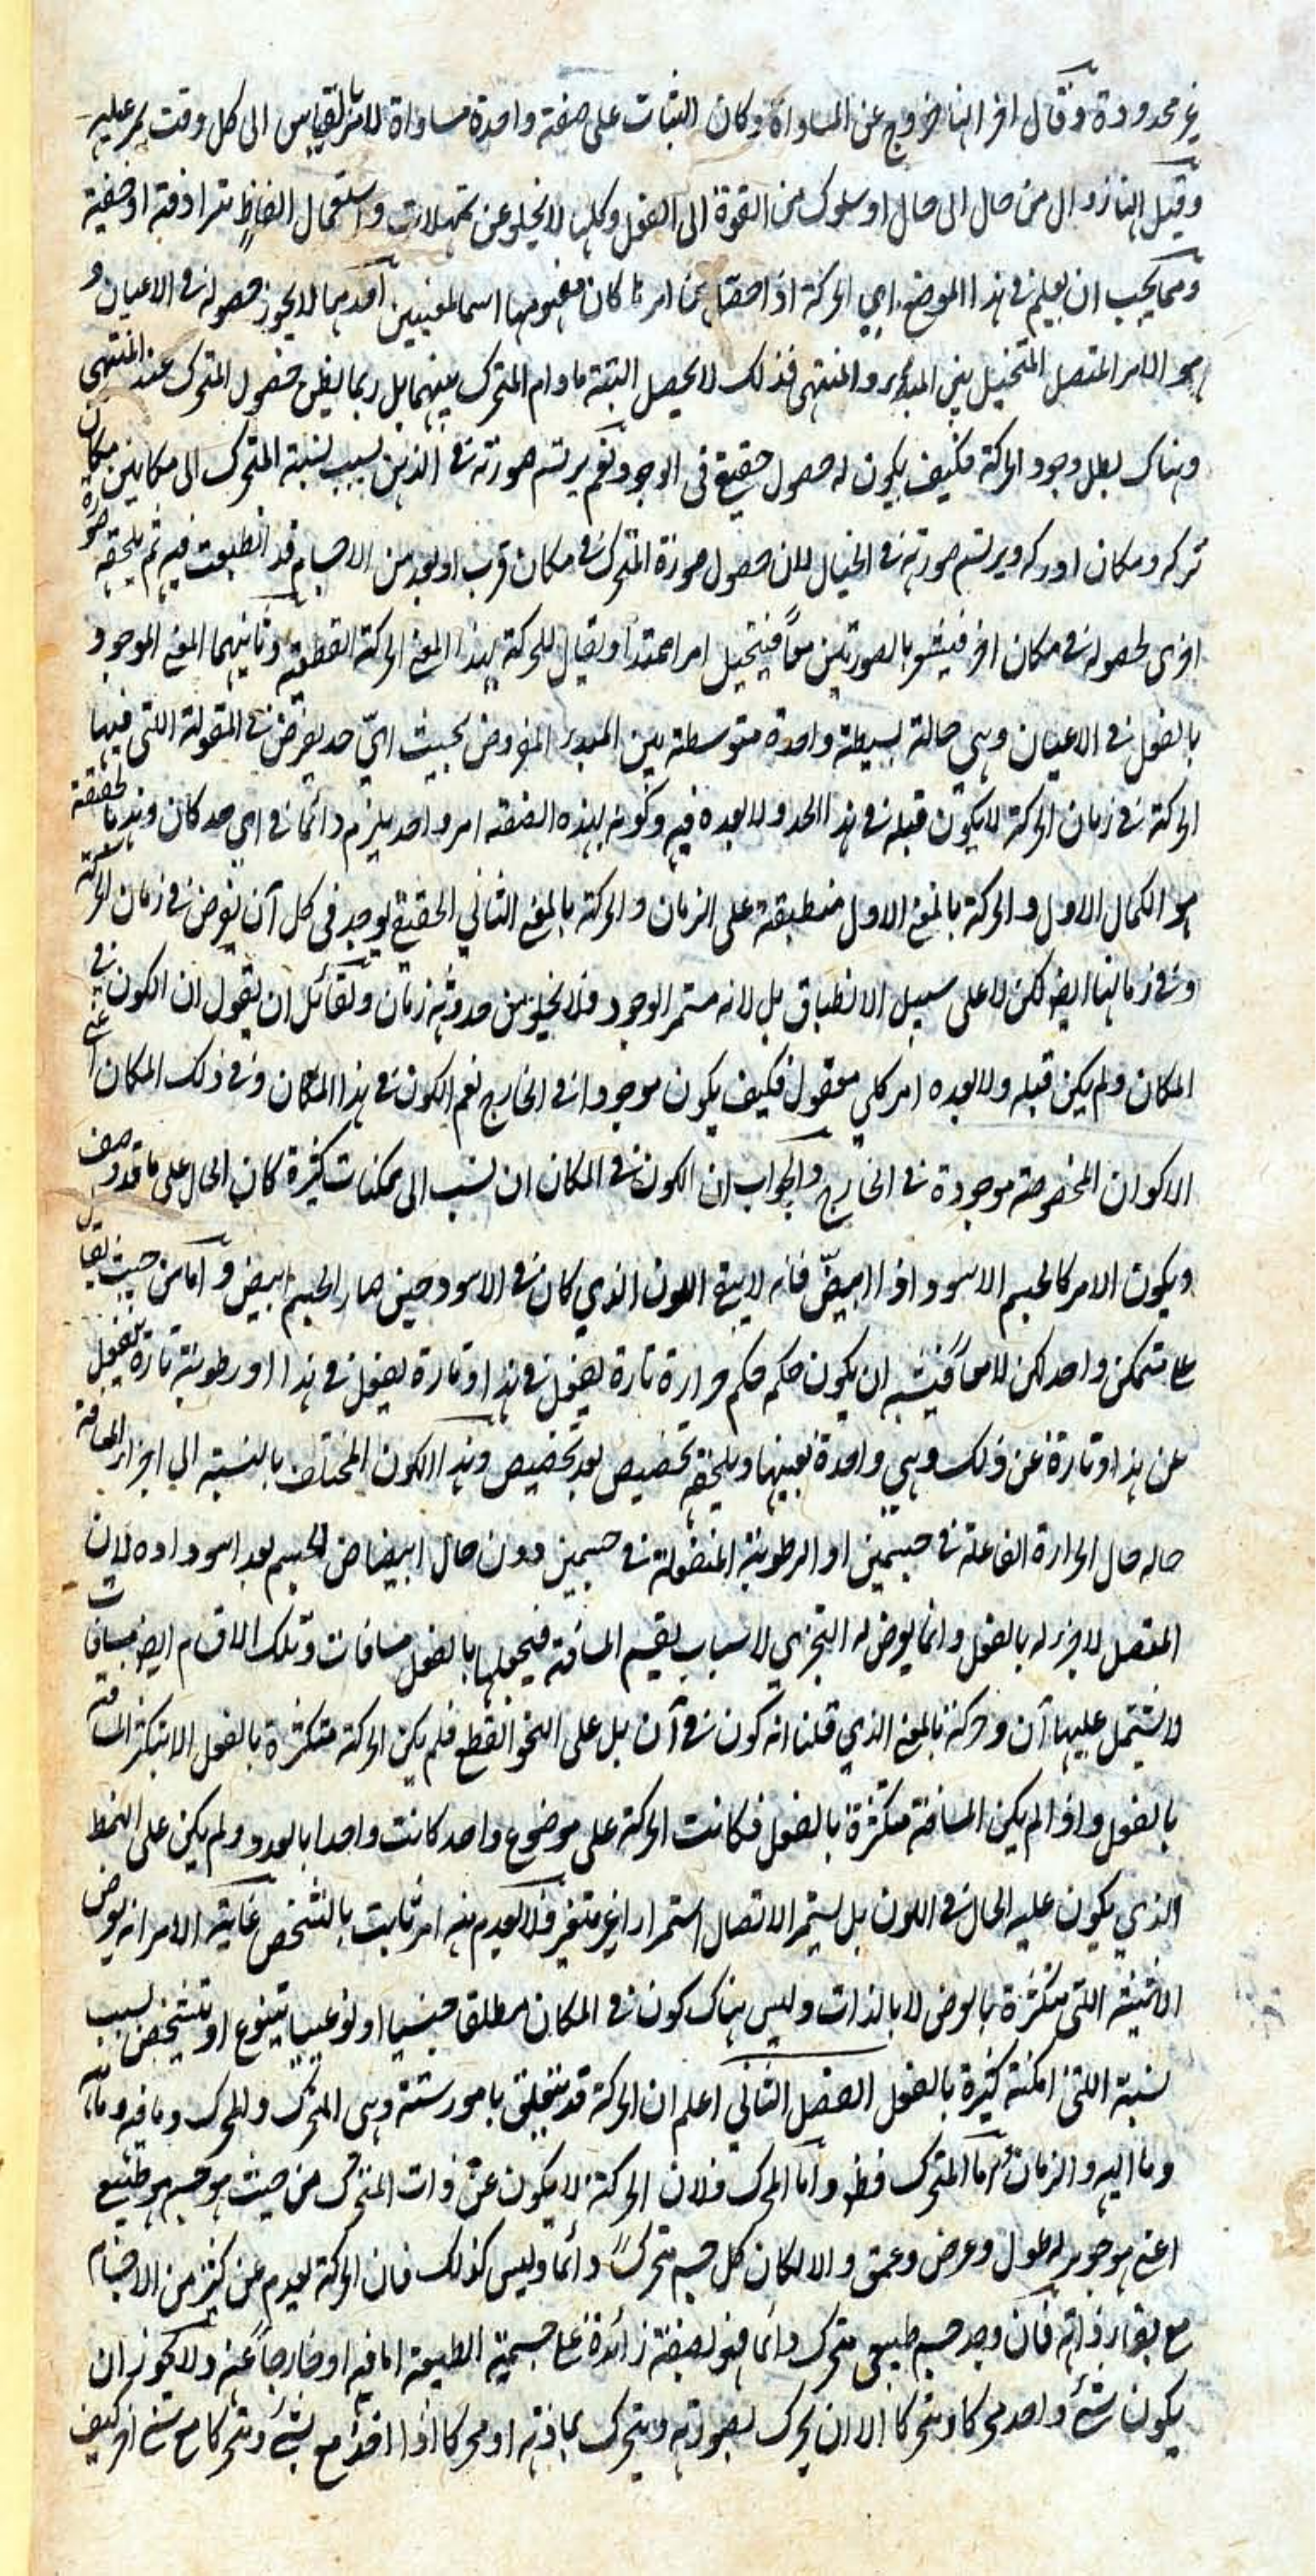 غير محدودة وقال اخر انها خروج عن المساواة وكان الثبات على صفة واحدة مساواة لامر بالقياس الى كل وقت يمر عليه
وقيل انها زوال من حال الى حال او سلوك من القوة الى الفعل وكلها لا يخلو عن تمحلات واستعمال الفاظ مترادفة او خفية
ومما يجب ان يعلم في هذا الموضع اي الحركة اذا حصل من امرها كان مفهومها اسما لمعنيين احدهما لا يجوز حصوله في الاعيان و
هو الامر المتصل المتخيل بين المبدء والمنتهى فذلك لا يحصل البتة ما دام المتحرك بينهما بل ربما يظن حصول المتحرك عند المنتهى
وهناك بطل وجود الحركة فكيف يكون له حصول حقيقي في الوجود نعم يرتسم صورته في الذهن بسبب نسبة المتحرك الى مكانين مكان
تركه ومكان ادركه ويرتسم صورته في الخيال لان حصول صورة المتحرك في مكان قرب او بعد من الاجسام قد انطبعت فيه ثم يلحقه صورة
اخرى لحصوله في مكان اخر فيشعر بالصورتين معا فيتخيل امرا ممتدا ويقال للحركة بهذا المعنى الحركة القطعية وثانيهما المعنى الموجود
بالفعل في الاعيان وهي حالة بسيطة واحدة متوسطة بين المبدء المفروض بحيث اي حد يفرض في المقولة التي فيها
الحركة في زمان الحركة لا يكون قبله في هذا الحد ولا بعده فيه وكونه بهذه الصفة امر واحد يلزم دائما في اي حد كان وهذا بالحقيقة
هو الكمال الاول والحركة بالمعنى الاول منطبقة على الزمان والحركة بالمعنى الثاني الحقيقي يوجد في كل آن يفرض في زمان الحركة
وفي زمانها ايضا لكن لا على سبيل الانطباق بل لانه مستمر الوجود فلا يخلو من حدوثه زمان ولقائل ان يقول ان الكون في
المكان ولم يكن قبله ولا بعده امر كلي معقول فكيف يكون موجودا في الخارج نعم الكون في هذا المكان وفي ذلك المكان اعني
الاكوان المخصوصة موجودة في الخارج والجواب ان الكون في المكان ان نسب الى ممكنات كثيرة كان الحال على ما قد وصف
ويكون الامر كالجسم الاسود اذا ابيض فانه لا يبقى اللون الذي كان في الاسود حين صار الجسم ابيض واما من حيث يقاس
على متمكن واحد لكن لا معا فيشبه ان يكون حكمه حكم حرارة تارة يفعل في هذا وتارة يفعل في هذا او رطوبة تارة ينفعل
عن هذا وتارة عن ذلك وهي واحدة بعينها ويلحقه تخصيص بعد تخصيص وهذا الكون المختلف بالنسبة الى اجزاء المسافة
حاله حال الحرارة الفاعلة في جسمين او الرطوبة المنفعلة في جسمين دون حال ابيضاض الجسم بعد اسوداده لان
المتصل لا جزء له بالفعل وانما يعرض له التجزي لاسباب يقسم المسافة فيجعلها بالفعل مسافات وتلك الاقسام ايضا مسافات
ولا يشتمل عليها آن وحركة بالمعنى الذي قلنا انه كون في آن بل على النحو القطع فلم يكن الحركة متكثرة بالفعل الا بتكثر المسافة
بالفعل واذا لم يكن المسافة متكثرة بالفعل فكانت الحركة على موضوع واحد كانت واحدا بالعدد ولم يكن على النمط
الذي يكون عليه الحال في اللون بل يستمر الاتصال استمرارا غير متغير فلا يعدم منه امر ثابت بالتشخص غاية الامر انه يعرض
الاثنينية التي متكثرة بالعرض لا بالذات وليس هناك كون في المكان مطلقا جنسيا او نوعيا يتنوع او يتشخص بسبب
نسبة التي امكنة كثيرة بالفعل الفصل الثاني اعلم ان الحركة قد يتعلق بامور ستة وهي المتحرك والمحرك وما فيه وما منه
وما اليه والزمان واما المتحرك فظ واما المحرك فلان الحركة لا يكون عن ذات المتحرك من حيث هو جسم طبيعي
اعني هو جوهر له طول وعرض وعمق والا لكان كل جسم متحركا دائما وليس كذلك فان الحركة يعدم عن كثير من الاجسام
مع بقاء ذاته فان وجد جسم طبيعي متحرك دائما فهو لصفة زائدة على جسمية الطبيعة اما فيه او خارجا عنه ولا يجوز ان
يكون شئ واحد محركا ومتحركا الا ان يحرك بصورته ويتحرك بمادته او محركا اذا اخذ مع شئ ومتحركا مع شئ اخر كيف